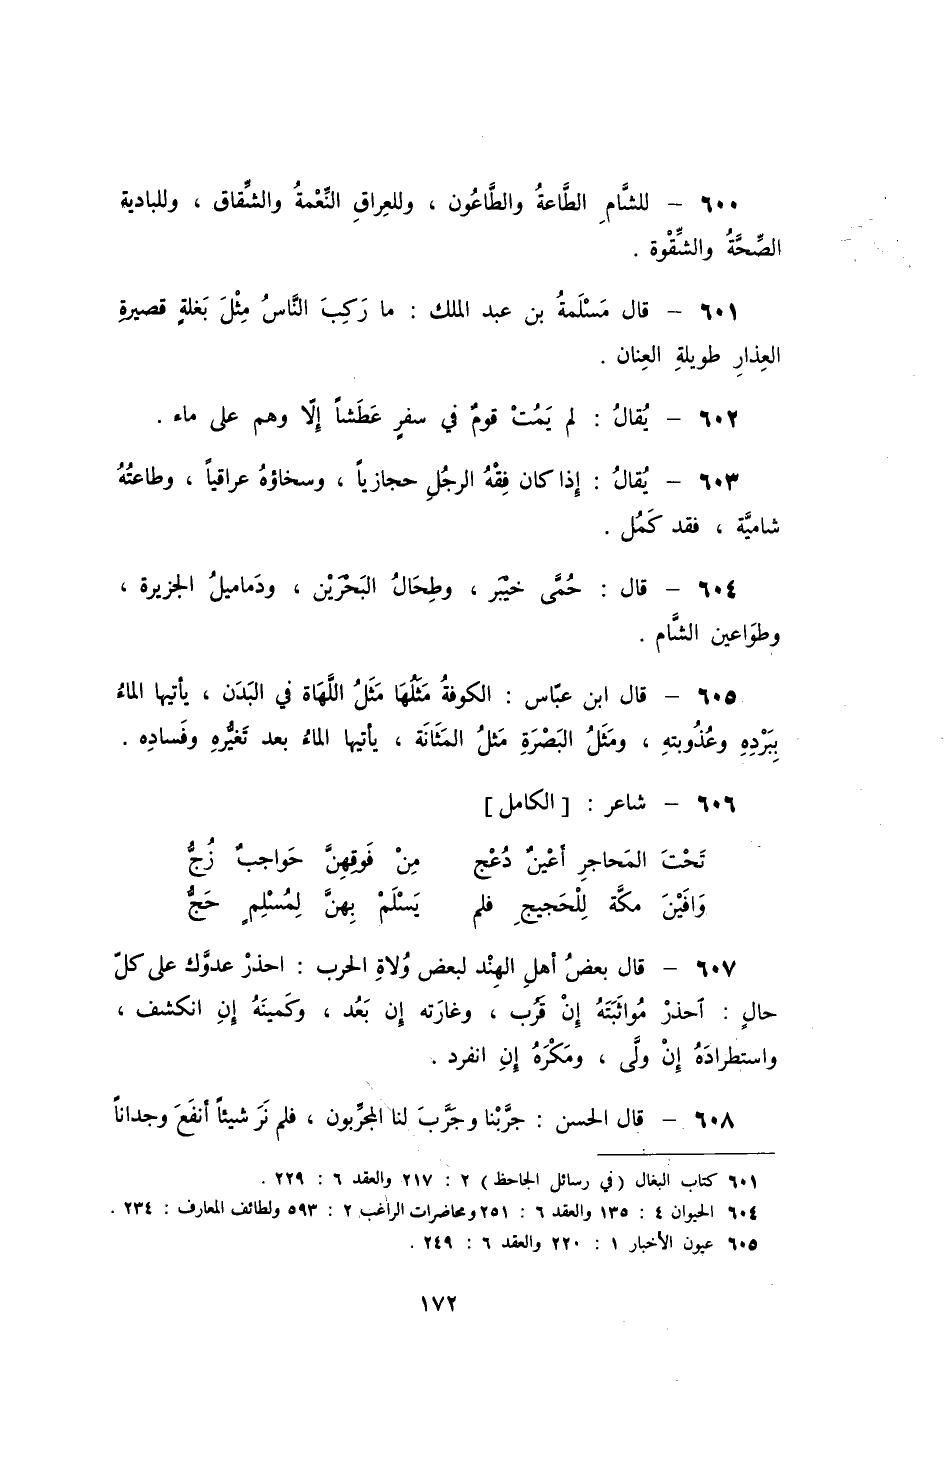 ٦٠٠ – للشَّامِ الطَّاعةُ والطَّاعُون ، وللعِراقِ النِّعْمةُ والشِّقاق ، وللبادية
الصِّحَّةُ والشِّقْوة .
٦٠١ – قال مَسْلَمةُ بن عبد الملك : ما رَكِبَ النَّاسُ مِثْلَ بَغلةٍ قصيرةِ
العِذارِ طويلةِ العِنان .
٦٠٢ – يُقالُ : لم يَمُتْ قومٌ في سفرٍ عَطَشاً إلّا وهم على ماء .
٦٠٣ – يُقالُ : إذا كان فِقْهُ الرجُلِ حجازياً ، وسخاؤهُ عراقياً ، وطاعتُهُ
شاميَّة ، فقد كَمُل .
٦٠٤ – قال : حُمَّى خيْبَر ، وطِحَالُ البَحْرَيْن ، ودَماميلُ الجزيرة ،
وطوَاعين الشَّام .
٦٠٥ – قال ابن عبّاس : الكوفةُ مَثَلُهَا مَثَلُ اللَّهَاة في البَدَن ، يأتيها الماءُ
بِبَرْدِهِ وعُذُوبتهِ ، ومَثَلُ البَصْرَةِ مَثلُ المَثَانَة ، يأتيها الماءُ بعد تَغيُّرِهِ وفَسادِه .
٦٠٦ – شاعر : [ الكامل ]
تَحْتَ المَحاجرِ أعْينٌ دُعْج مِنْ فَوقِهِنَّ حَواجبٌ زُجُّ
وَافَيْنَ مكَّة لِلْحَجيجِ فلم يَسْلَمْ بِهنَّ لِمُسْلِمٍ حَجُّ
٦٠٧ – قال بعضُ أهلِ الهِنْد لبعض وُلاةِ الحرب : احذرْ عدوَّك على كلّ
حالٍ : آحذرْ مُواثَبَتَهُ إنْ قَرُب ، وغارَته إن بَعُد ، وكَمينَهُ إنِ انكشف ،
واستطرادَهُ إنْ ولَّى ، ومَكْرَهُ إنِ انفرد .
٦٠٨ – قال الحسن : جرَّبْنا وجَرَّبَ لنا المجرِّبون ، فلم نَرَ شيئاً أنفَعَ وجداناً
٦٠١ كتاب البغال (في رسائل الجاحظ) ٢ : ٢١٧ والعقد ٦ : ٢٢٩ .
٦٠٤ الحيوان ٤ : ١٣٥ والعقد ٦ : ٢٥١ ومحاضرات الراغب ٢ : ٥٩٣ ولطائف المعارف : ٢٣٤ .
٦٠٥ عيون الأخبار ١ : ٢٢٠ والعقد ٦ : ٢٤٩ .
١٧٢